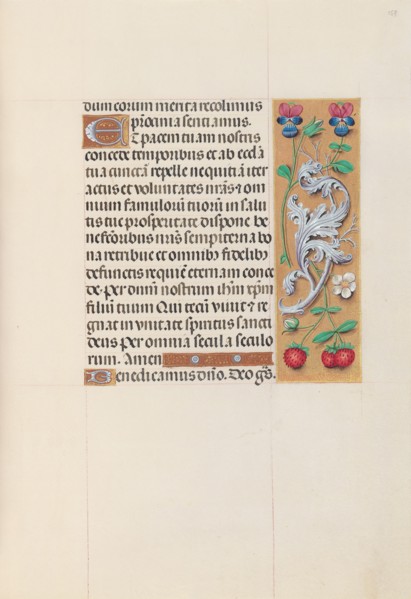 dum eorum merita recolimus
patrocinia sentiamus.
Et pacem tuam nostris
concede temporibus et ab eccl̄ia
tua cunctam repelle nequitiā iter
actus et voluntates nr̄as ⁊ om
nium famulorū tuorū in salu
tis tue prosperitate dispone be
nefctoribus nr̄is sempiterna bo
na retribue et omnibꝰ fidelibꝰ
defunctis requiē eternam conce
de. per dn̄m nostrum ih̄m xp̄m
filiū tuum Qui tecū viuit ⁊ re
gnat in vnitate spiritus sancti
deus per omnia secula seculo
rum. Amen
Benedicamus dn̄o. Deo gr̄s.